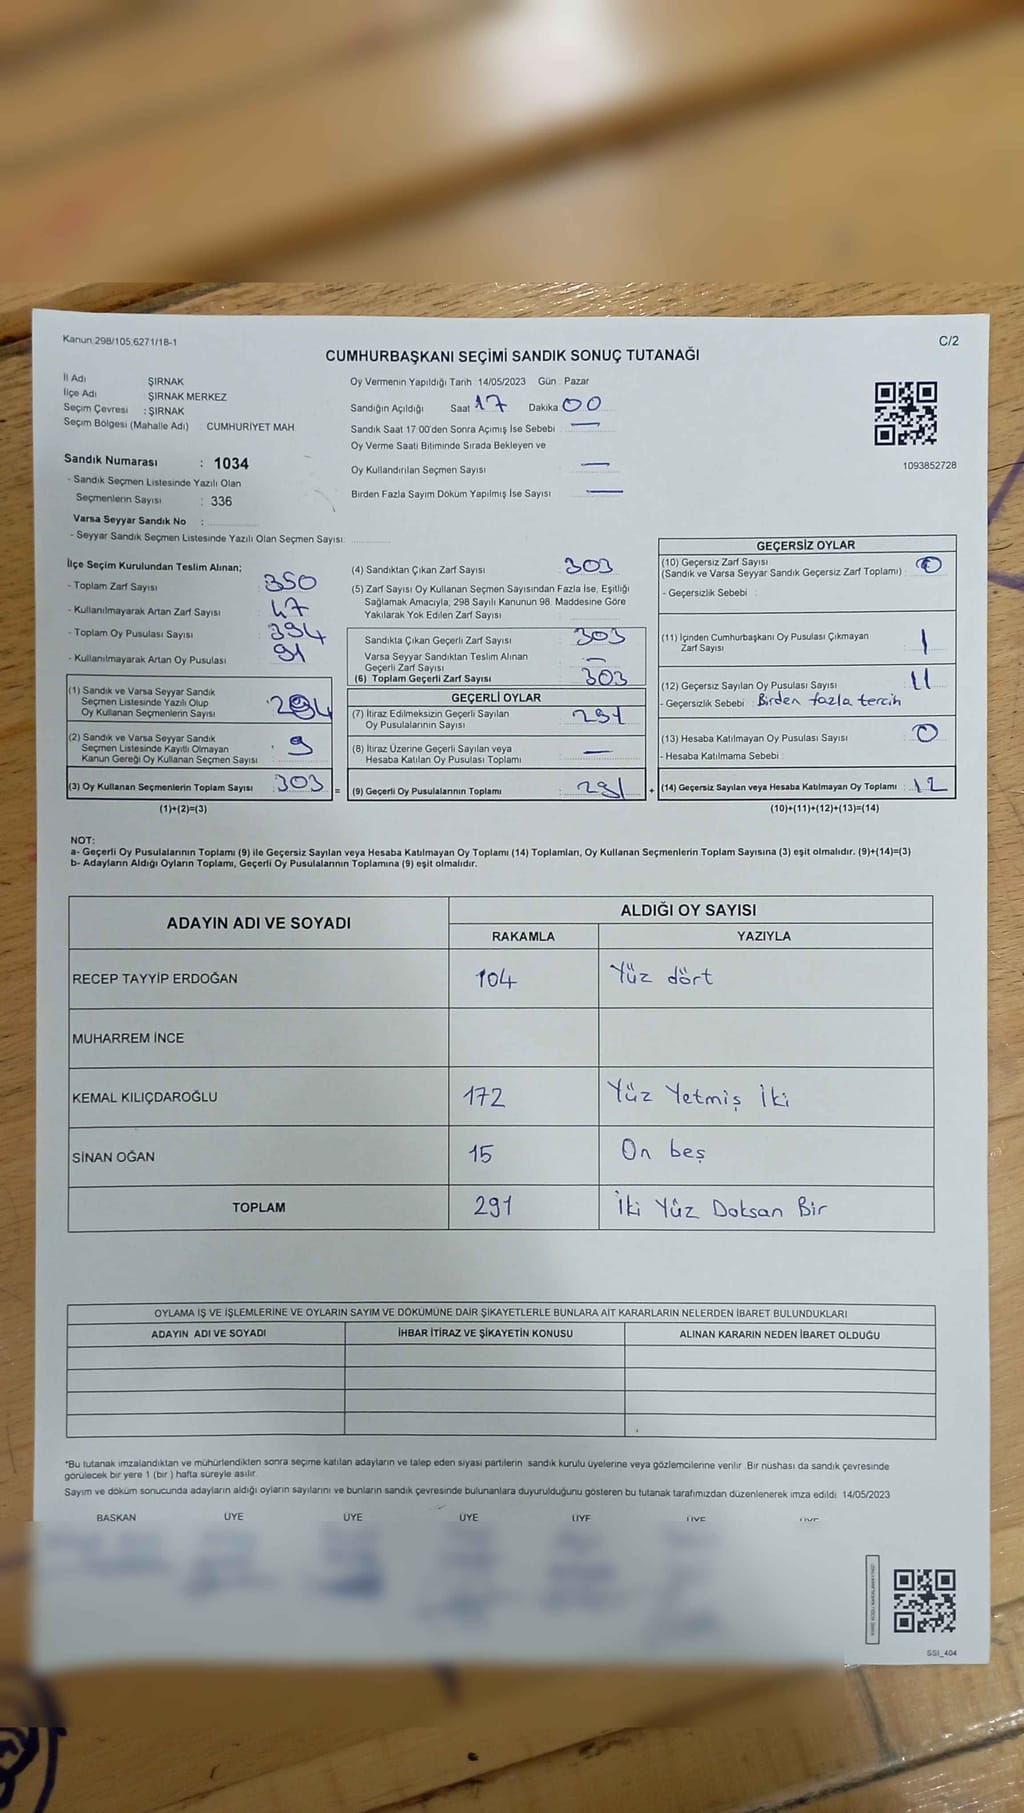 Kanun:298/105,6271/18-1
C/2
CUMHURBAŞKANI SEÇİMİ SANDIK SONUÇ TUTANAĞI
İl Adı ŞIRNAK
İlçe Adı ŞIRNAK MERKEZ
Seçim Çevresi : ŞIRNAK
Seçim Bölgesi (Mahalle Adı) CUMHURİYET MAH
Sandık Numarası : 1034
- Sandık Seçmen Listesinde Yazılı Olan
Seçmenlerin Sayısı : 336
Varsa Seyyar Sandık No :
- Seyyar Sandık Seçmen Listesinde Yazılı Olan Seçmen Sayısı:
Oy Vermenin Yapıldığı Tarih 14/05/2023 Gün Pazar
Sandığın Açıldığı Saat 17 Dakika 00
Sandık Saat 17:00'den Sonra Açımış İse Sebebi —
Oy Verme Saati Bitiminde Sırada Bekleyen ve
Oy Kullandırılan Seçmen Sayısı —
Birden Fazla Sayım Döküm Yapılmış İse Sayısı —
1093852728
İlçe Seçim Kurulundan Teslim Alınan;
- Toplam Zarf Sayısı : 350
- Kullanılmayarak Artan Zarf Sayısı : 47
- Toplam Oy Pusulası Sayısı : 394
- Kullanılmayarak Artan Oy Pusulası : 91
(1) Sandık ve Varsa Seyyar Sandık
Seçmen Listesinde Yazılı Olup
Oy Kullanan Seçmenlerin Sayısı : 294
(2) Sandık ve Varsa Seyyar Sandık
Seçmen Listesinde Kayıtlı Olmayan
Kanun Gereği Oy Kullanan Seçmen Sayısı : 9
(3) Oy Kullanan Seçmenlerin Toplam Sayısı : 303 =
(1)+(2)=(3)
(4) Sandıktan Çıkan Zarf Sayısı 303
(5) Zarf Sayısı Oy Kullanan Seçmen Sayısından Fazla İse, Eşitliği
Sağlamak Amacıyla, 298 Sayılı Kanunun 98. Maddesine Göre
Yakılarak Yok Edilen Zarf Sayısı
Sandıkta Çıkan Geçerli Zarf Sayısı 303
Varsa Seyyar Sandıktan Teslim Alınan
Geçerli Zarf Sayısı —
(6) Toplam Geçerli Zarf Sayısı 303
GEÇERLİ OYLAR
(7) İtiraz Edilmeksizin Geçerli Sayılan
Oy Pusulalarının Sayısı : 291
(8) İtiraz Üzerine Geçerli Sayılan veya
Hesaba Katılan Oy Pusulası Toplamı : —
(9) Geçerli Oy Pusulalarının Toplamı : 291 +
GEÇERSİZ OYLAR
(10) Geçersiz Zarf Sayısı
(Sandık ve Varsa Seyyar Sandık Geçersiz Zarf Toplamı) : 0
- Geçersizlik Sebebi :
(11) İçinden Cumhurbaşkanı Oy Pusulası Çıkmayan
Zarf Sayısı : 1
(12) Geçersiz Sayılan Oy Pusulası Sayısı : 11
- Geçersizlik Sebebi : Birden fazla tercih
(13) Hesaba Katılmayan Oy Pusulası Sayısı : 0
- Hesaba Katılmama Sebebi :
(14) Geçersiz Sayılan veya Hesaba Katılmayan Oy Toplamı : 12
(10)+(11)+(12)+(13)=(14)
NOT:
a- Geçerli Oy Pusulalarının Toplamı (9) ile Geçersiz Sayılan veya Hesaba Katılmayan Oy Toplamı (14) Toplamları, Oy Kullanan Seçmenlerin Toplam Sayısına (3) eşit olmalıdır. (9)+(14)=(3)
b- Adayların Aldığı Oyların Toplamı, Geçerli Oy Pusulalarının Toplamına (9) eşit olmalıdır.
ADAYIN ADI VE SOYADI ALDIĞI OY SAYISI
RAKAMLA YAZIYLA
RECEP TAYYİP ERDOĞAN 104 Yüz dört
MUHARREM İNCE
KEMAL KILIÇDAROĞLU 172 Yüz Yetmiş İki
SİNAN OĞAN 15 On beş
TOPLAM 291 İki Yüz Doksan Bir
OYLAMA İŞ VE İŞLEMLERİNE VE OYLARIN SAYIM VE DÖKÜMÜNE DAİR ŞİKAYETLERLE BUNLARA AİT KARARLARIN NELERDEN İBARET BULUNDUKLARI
ADAYIN ADI VE SOYADI İHBAR İTİRAZ VE ŞİKAYETİN KONUSU ALINAN KARARIN NEDEN İBARET OLDUĞU
*Bu tutanak imzalandıktan ve mühürlendikten sonra seçime katılan adayların ve talep eden siyasi partilerin sandık kurulu üyelerine veya gözlemcilerine verilir. Bir nüshası da sandık çevresinde
görülecek bir yere 1 (bir) hafta süreyle asılır.
Sayım ve döküm sonucunda adayların aldığı oyların sayılarını ve bunların sandık çevresinde bulunanlara duyurulduğunu gösteren bu tutanak tarafımızdan düzenlenerek imza edildi. 14/05/2023
BAŞKAN ÜYE ÜYE ÜYE ÜYE ÜYE ÜYE
SSİ_404